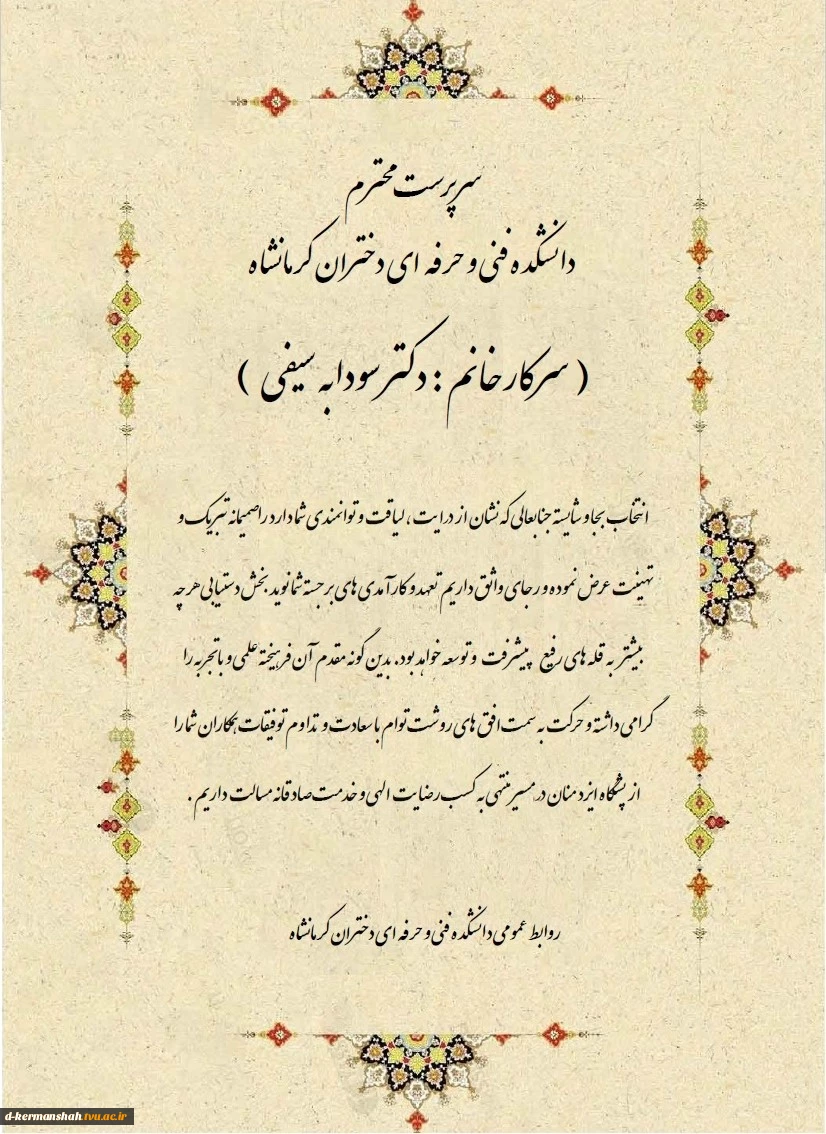 سرپرست محترم
دانشکده فنی و حرفه ای دختران کرمانشاه
( سرکار خانم : دکتر سودابه سیفی )
انتخاب بجا و شایسته جنابعالی که نشان از درایت ، لیاقت و توانمندی شما دارد را صمیمانه تبریک و
تهنیت عرض نموده و رجای واثق داریم تعهد و کارآمدی های برجسته شما نوید بخش دستیابی هر چه
بیشتر به قله های رفیع پیشرفت و توسعه خواهد بود. بدین گونه مقدم آن فرهیخته علمی و باتجربه را
گرامی داشته و حرکت به سمت افق های روشت توام با سعادت و تداوم توفیقات همکاران شما را
از پیشگاه ایزد منان در مسیر منتهی به کسب رضایت الهی و خدمت صادقانه مسالت داریم .
روابط عمومی دانشکده فنی و حرفه ای دختران کرمانشاه
d-kermanshah.tvu.ac.ir